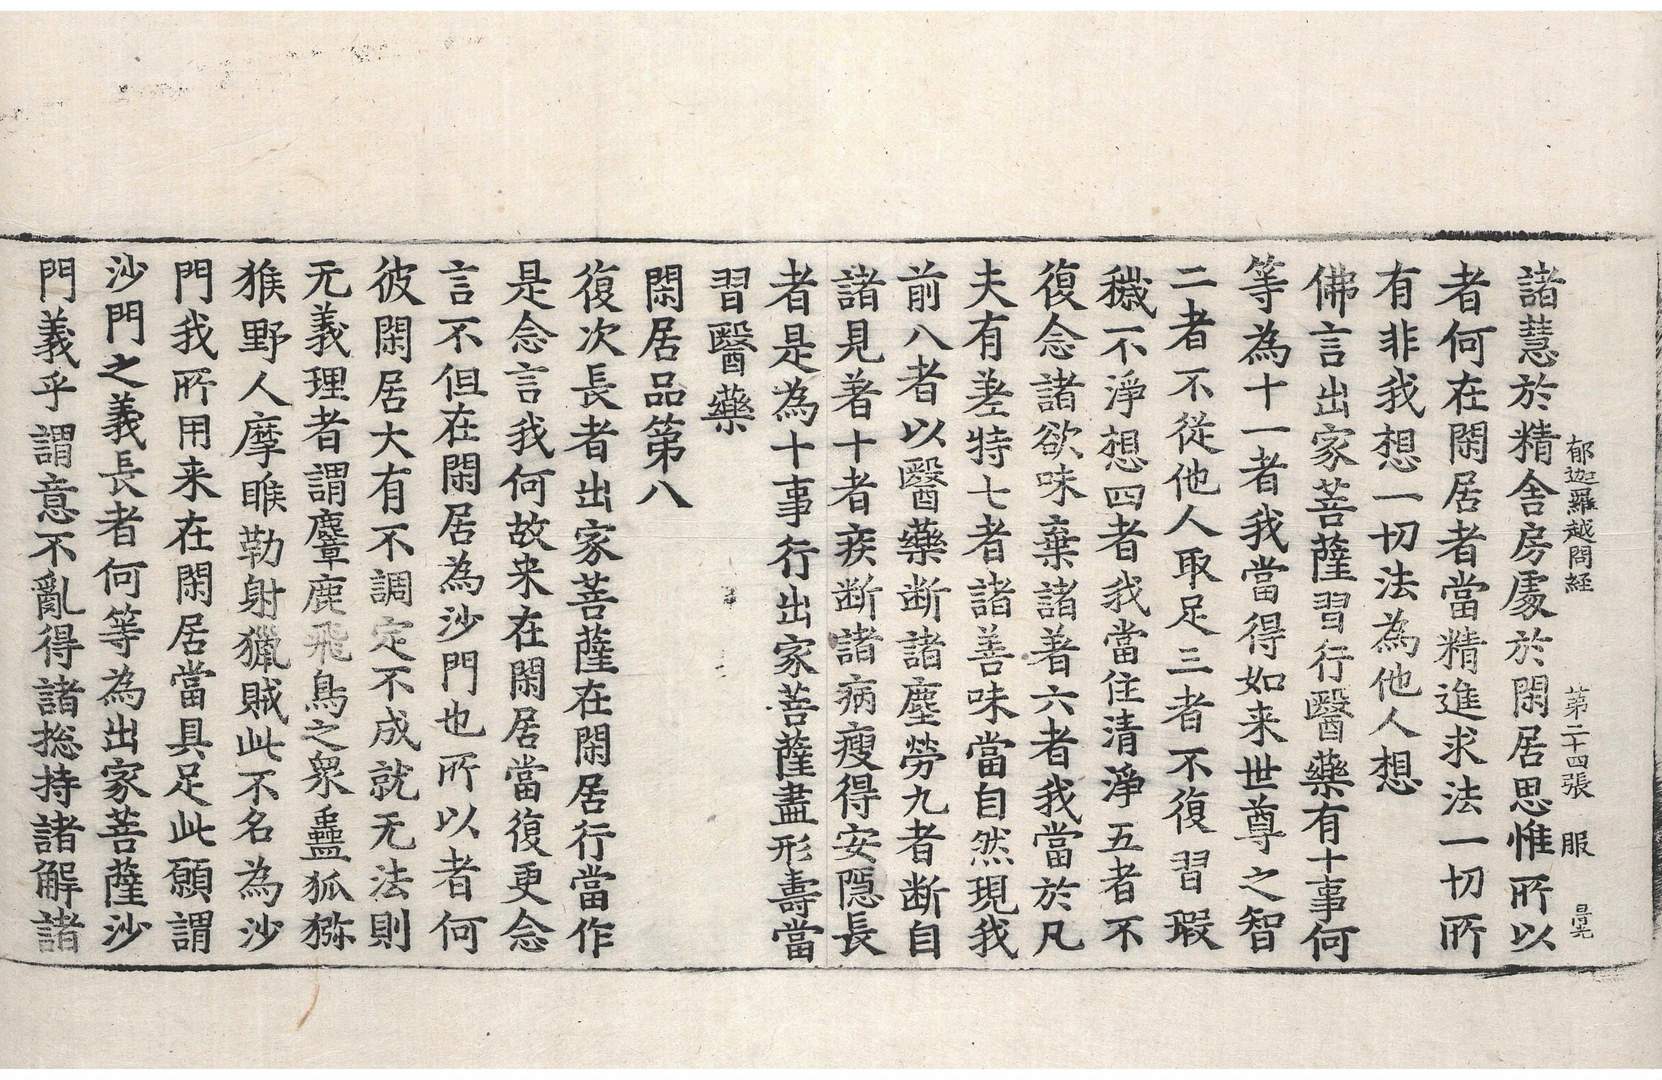 郁迦羅越問経 第二十四張 服
諸慧於精舍房處於閑居思惟所以
者何在閑居者當精進求法一切所
有非我想一切法為他人想
佛言出家菩薩習行醫藥有十事何
等為十一者我當得如来世尊之智
二者不從他人取足三者不復習瑕
穢不淨想四者我當住清淨五者不
復念諸欲味棄諸著六者我當於凡
夫有差特七者諸善味當自然現我
前八者以醫藥断諸塵勞九者断自
諸見著十者疾断諸病瘦得安隱長
者是為十事行出家菩薩盡形壽當
習醫藥
閑居品第八
復次長者出家菩薩在閑居行當作
是念言我何故来在閑居當復更念
言不但在閑居為沙門也所以者何
彼閑居大有不調定不成就无法則
无義理者謂麞鹿飛鳥之衆蠱狐猕
猴野人摩睺勒射獵賊此不名為沙
門我所用来在閑居當具足此願謂
沙門之義長者何等為出家菩薩沙
門義乎謂意不亂得諸捴持諸解諸